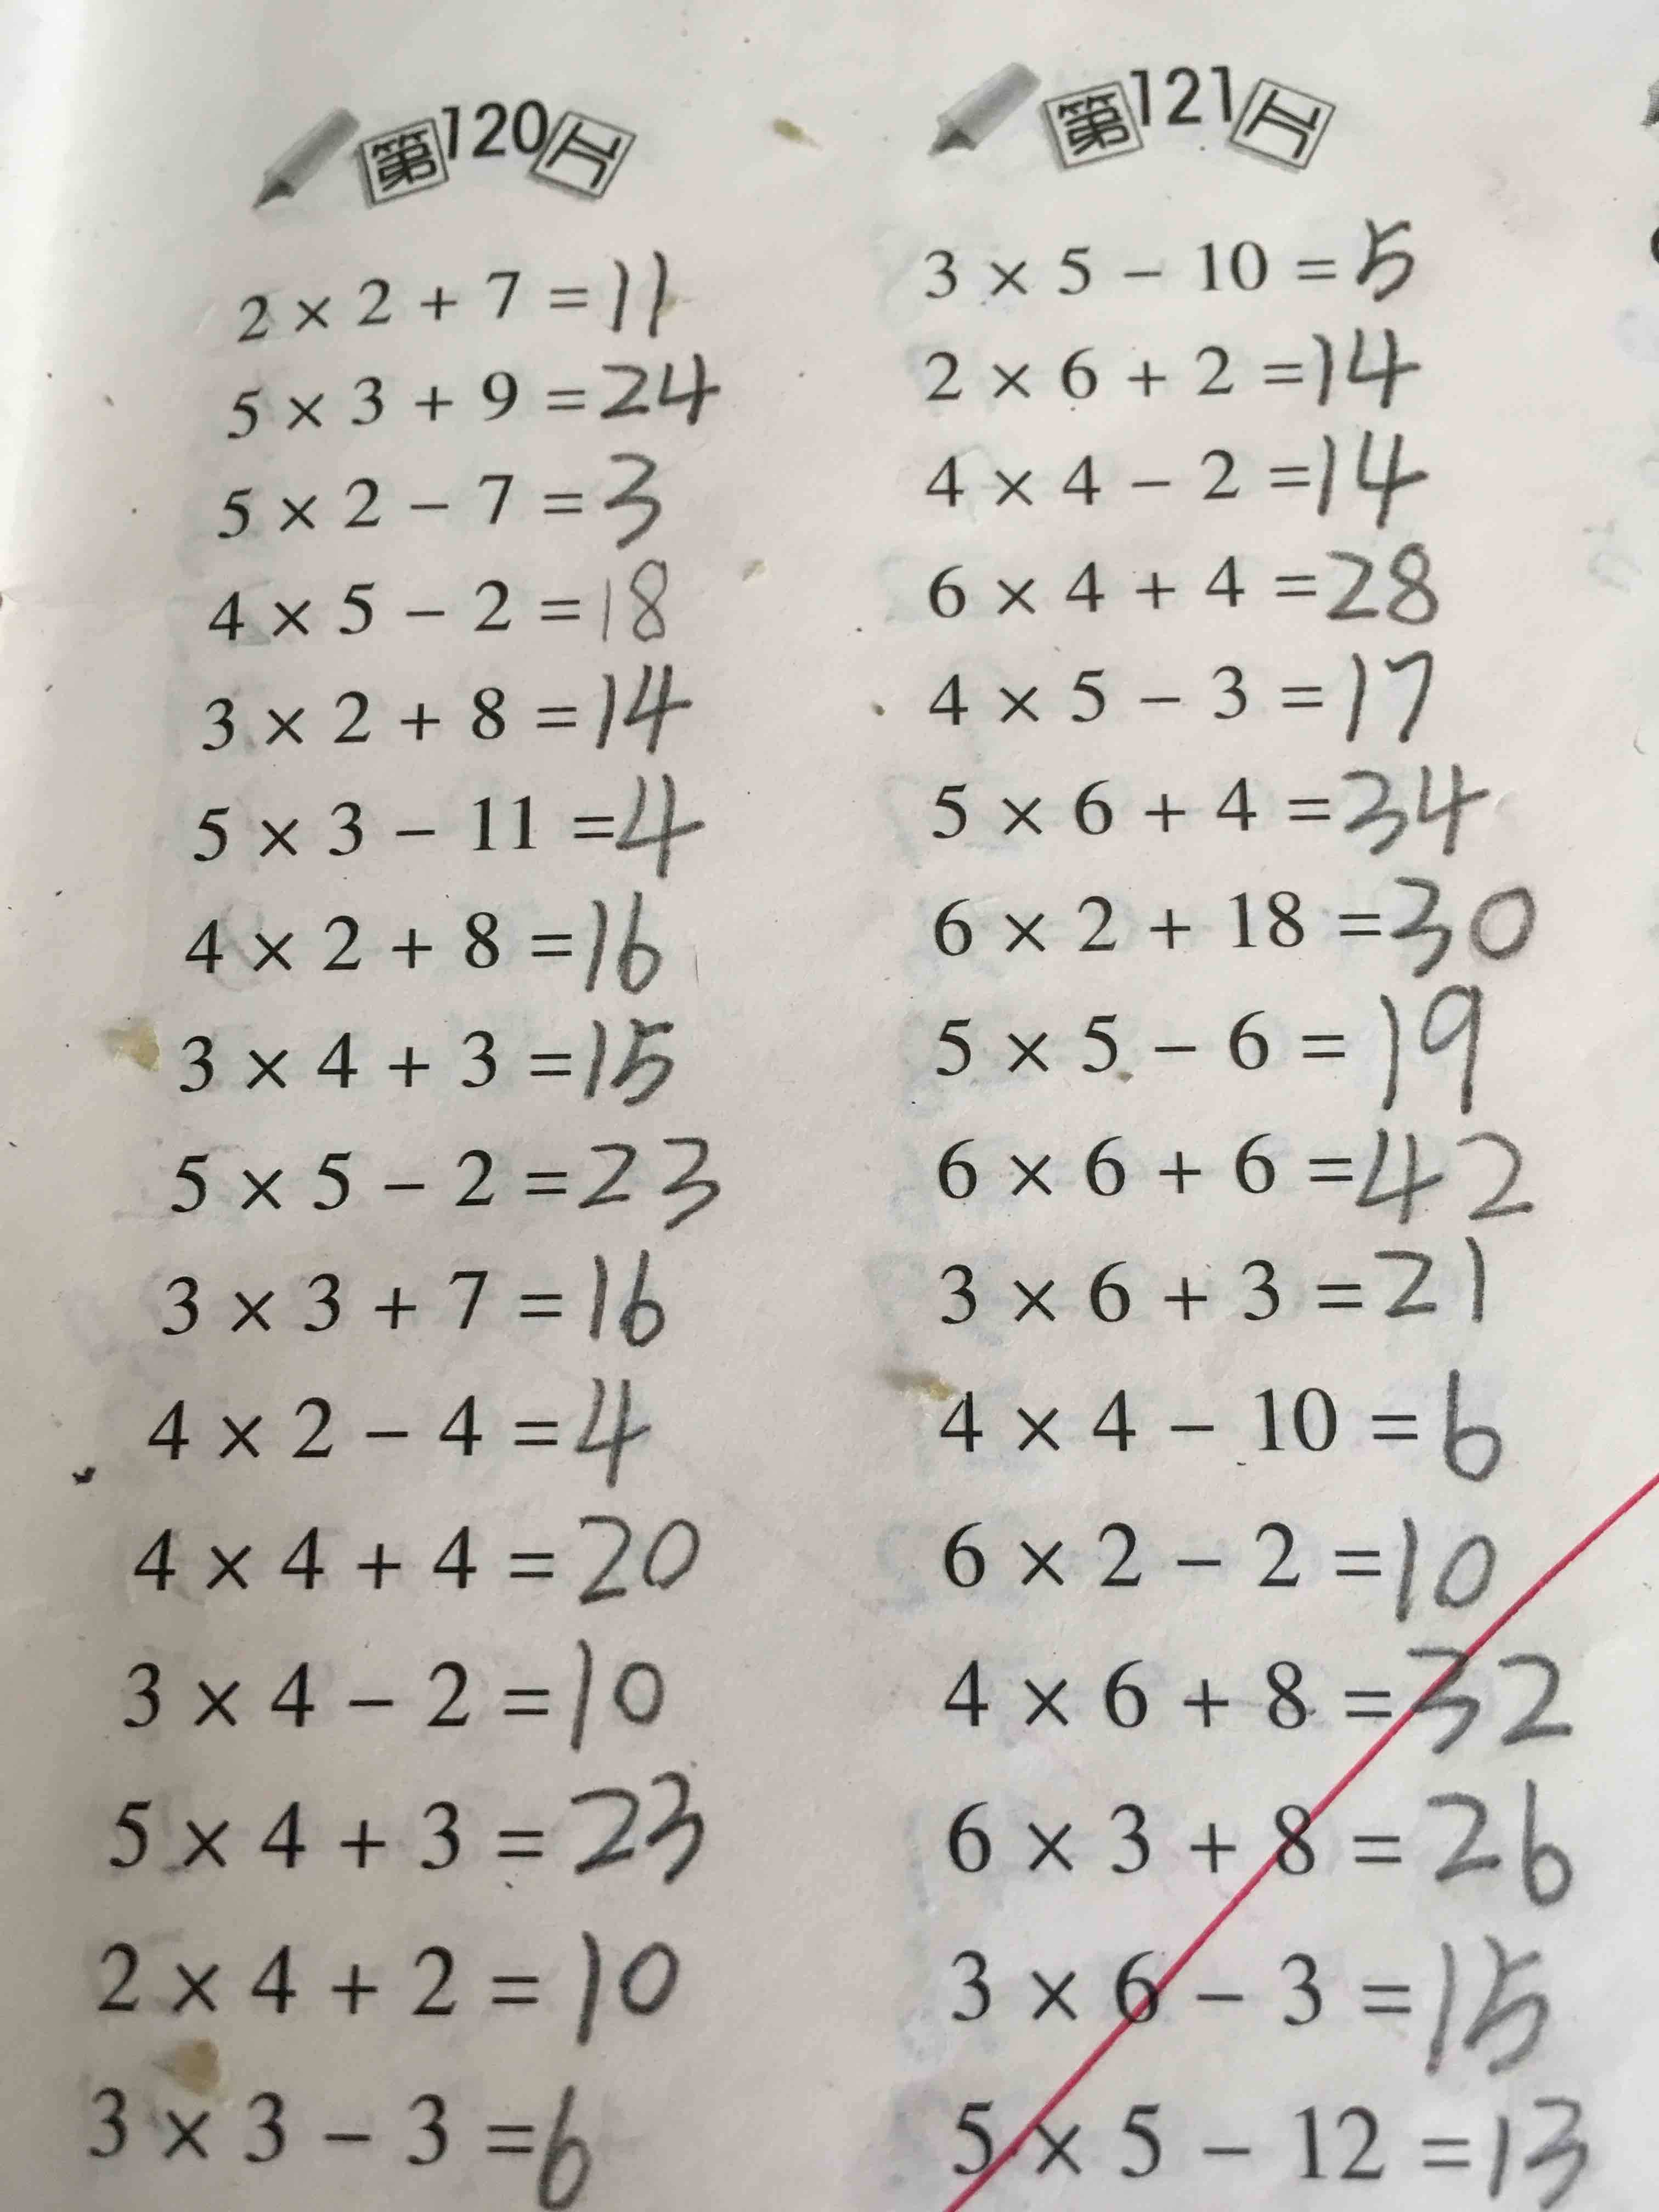 第120天
2 × 2 + 7 = 11
5 × 3 + 9 = 24
5 × 2 - 7 = 3
4 × 5 - 2 = 18
3 × 2 + 8 = 14
5 × 3 - 11 = 4
4 × 2 + 8 = 16
3 × 4 + 3 = 15
5 × 5 - 2 = 23
3 × 3 + 7 = 16
4 × 2 - 4 = 4
4 × 4 + 4 = 20
3 × 4 - 2 = 10
5 × 4 + 3 = 23
2 × 4 + 2 = 10
3 × 3 - 3 = 6
第121天
3 × 5 - 10 = 5
2 × 6 + 2 = 14
4 × 4 - 2 = 14
6 × 4 + 4 = 28
4 × 5 - 3 = 17
5 × 6 + 4 = 34
6 × 2 + 18 = 30
5 × 5 - 6 = 19
6 × 6 + 6 = 42
3 × 6 + 3 = 21
4 × 4 - 10 = 6
6 × 2 - 2 = 10
4 × 6 + 8 = 32
6 × 3 + 8 = 26
3 × 6 - 3 = 15
5 × 5 - 12 = 13